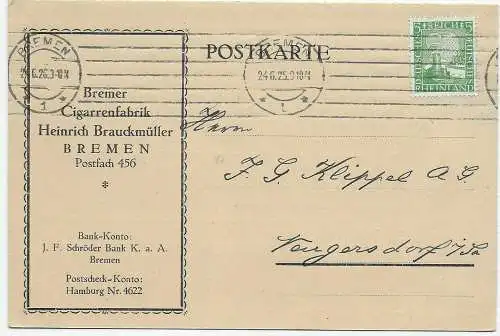 BREMEN
24.6.25.3-10N
* 1 *
BREMEN
24.6.25.3-10N
* 1 *
DEUTSCHES REICH
RHEINLAND
POSTKARTE
Bremer
Cigarrenfabrik
Heinrich Brauckmüller
BREMEN
Postfach 456
*
Bank-Konto:
J. F. Schröder Bank K. a. A.
Bremen
Postscheck-Konto:
Hamburg Nr. 4622
Herrn
F. G. Klippel A G.
Neugersdorf i/Sa